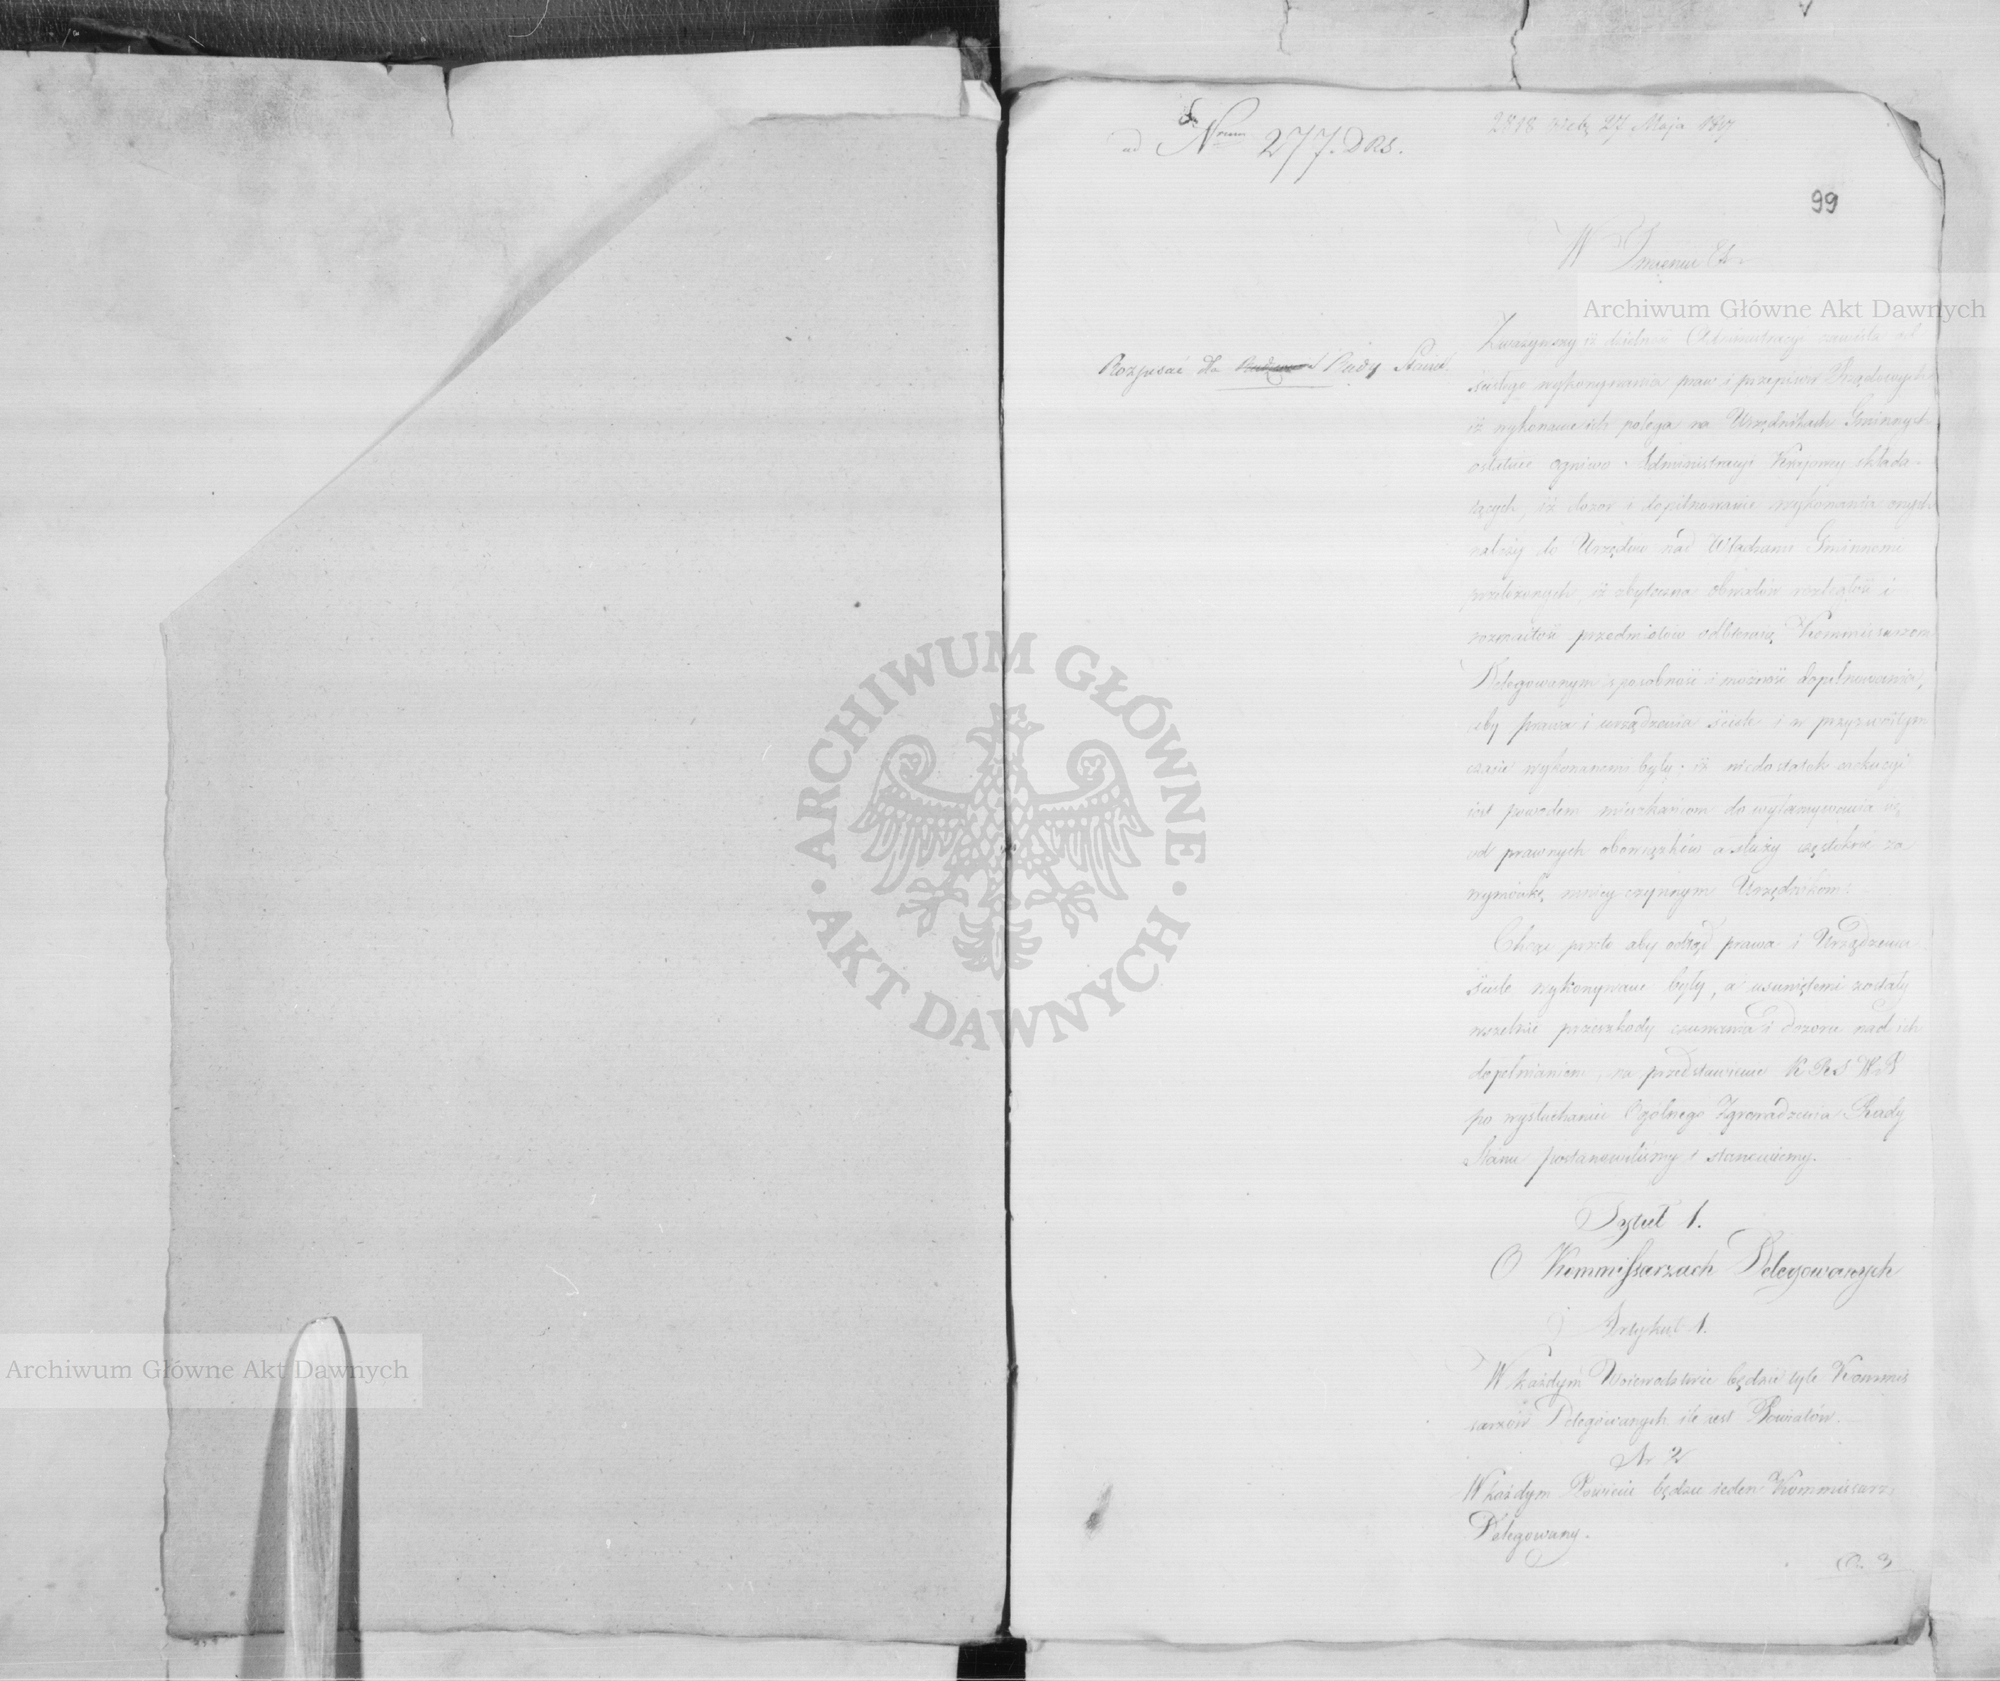 ad Nrum 277. DRS.
27 Maja
99
W Imieniu
Rozpisać dla Rady Stanu
Zważywszy iż dzielność Administracyi zawisła od
ścisłego wykonywania praw i przepisów Urzędowych
iż wykonanie ich polega na Urzędnikach Gminnych
ostatnie ogniwo Administracyi Krajowey składa-
iących, iż dozór i dopilnowanie wykonania onych
należy do Urzędów nad Władzami Gminnemi
przełożonych, iż zbyteczna obwodów rozległość i
rozmaitość przedmiotów odbieraią Kommissarzom
Delegowanym sposobność i możność dopilnowania,
aby prawa i urządzenia ściśle i w przyzwoitym
czasie wykonanemi były; iż niedostatek exekucyi
iest powodem mieszkańcom do wyłamywania się
od prawnych obowiązków a służy częstokroć za
wymówkę mniey czynnym Urzędnikom:
Chcąc przeto aby odtąd prawa i Urządzenia
ściśle wykonywane były, a usuniętemi zostały
wszelkie przeszkody czuwania i dozoru nad ich
dopełnianiem, na przedstawienie K R S W P
po wysłuchaniu Ogólnego Zgromadzenia Rady
Stanu postanowiliśmy i stanowiemy.
Tytuł 1.
O Kommissarzach Delegowanych
Artykuł 1.
W każdym Woiewództwie będzie tyle Kommis
sarzów Delegowanych ile iest Powiatów.
Ar 2
W każdym Powiecie będzie ieden Kommissarz
Delegowany.
A. 3
Archiwum Główne Akt Dawnych
Archiwum Główne Akt Dawnych
ARCHIWUM GŁÓWNE AKT DAWNYCH